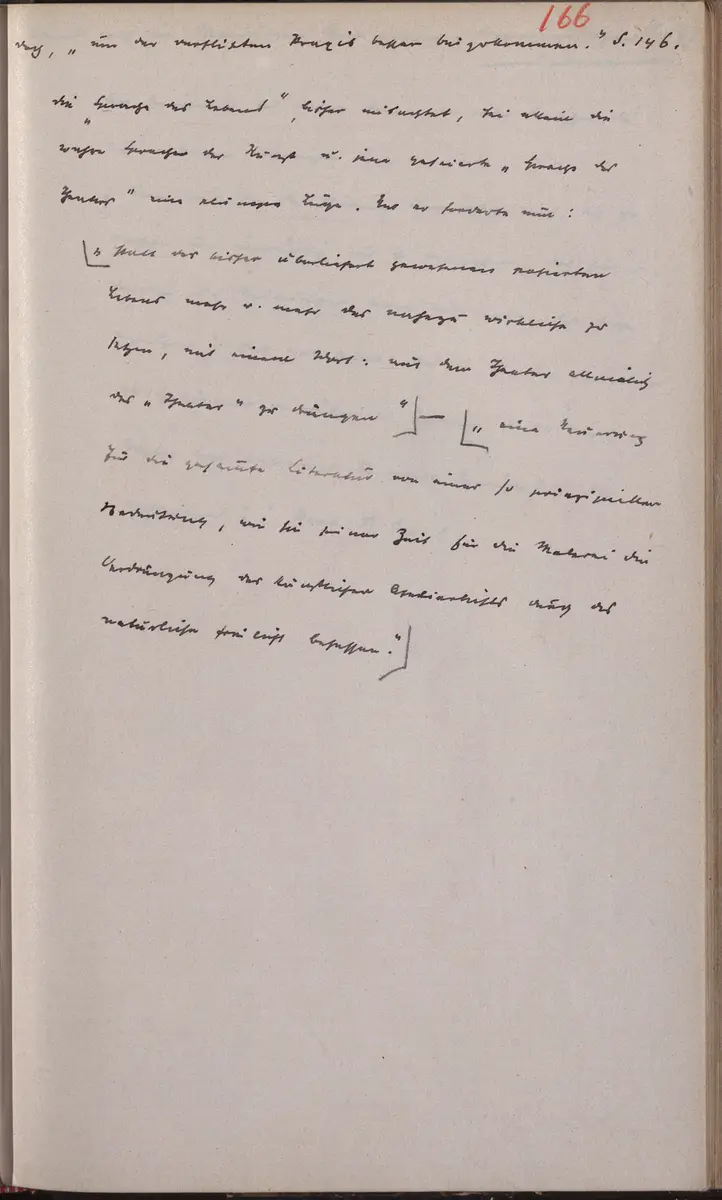 166
doch, „um der verflixten Praxis besser beizukommen.“ S. 146.
die „Sprache des Lebens“, bisher mißachtet, sei allein die
wahre Sprache der Kunst u. jene gefeierte „Sprache des
Theaters“ eine einzige Lüge. Und er forderte nun:
„statt des bisher überliefert gewesenen posierten
Lebens mehr u. mehr das nahezu wirkliche zu
setzen, mit einem Wort: aus dem Theater allmälich
das „Theater“ zu drängen“ — „eine Neuerung
für die gesamte Literatur von einer so prinzipiellen
Bedeutung, wie sie seiner Zeit für die Malerei die
Verdrängung des künstlichen Atelierlichts durch das
natürliche Freilicht besessen.“